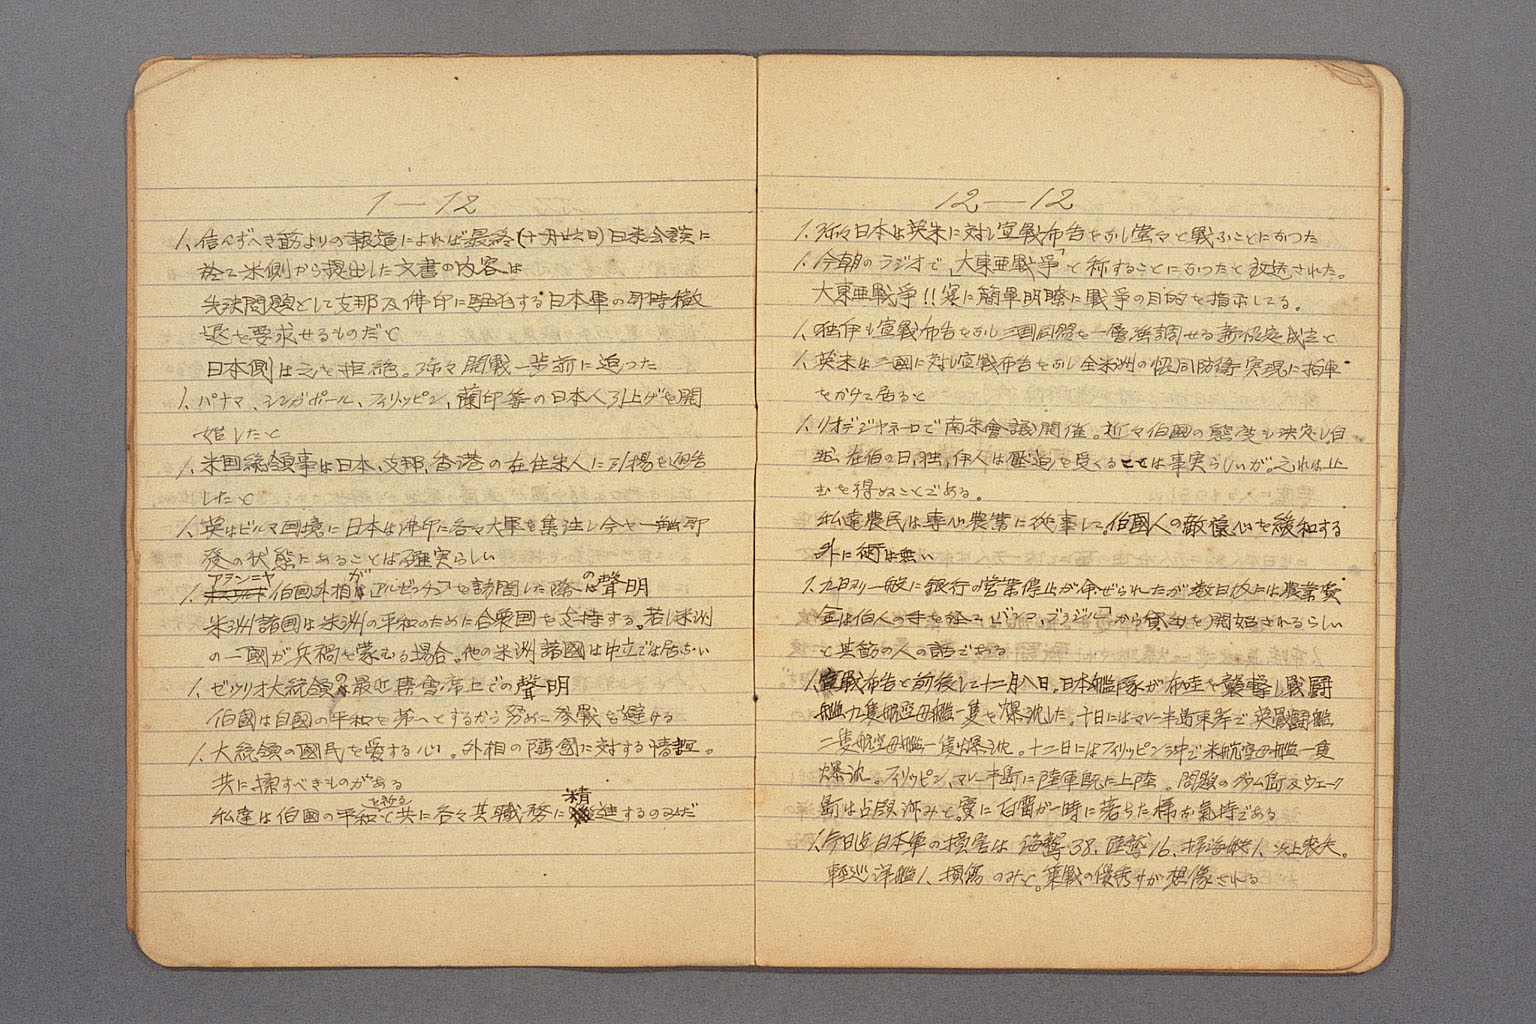 1—12
1、信んずべき筋よりの報道によれば最終(十一月廿六日)日米会談に
於て米側から提出した文書の内容は
先決問題として支那及佛印に駐屯する日本軍の即時撤
退を要求せるものだと
日本側は之を拒絶。弥々開戦一歩前に迫った
1、パナマ、シンガポール、フィリッピン、蘭印等の日本人引上げを開
始したと
1、米国総領事は日本、支那、香港の在住米人に引揚を通告
したと
1、英はビルマ国境に日本は佛印に各々大軍を集注し今や一触即
發の状態にあることは確実らしい
1、アランニヤ伯国外相がアルゼンチンを訪問した際の聲明
米洲諸国は米洲の平和のために合衆国を支持する。若し米洲
の一國が兵禍を蒙むる場合。他の米洲諸國は中立では居ない
1、ゼツリオ大統領の最近 席上での聲明
伯國は自國の平和を第一とするから努めて参戦を避ける
1、大統領の國民を愛する心。外相の隣國に対する情誼。
共に掬すべきものがある
私達は伯國の平和を祈ると共に各々其職務に精進するのみだ
12—12
1、弥々日本は英米に対し宣戦布告をなし堂々と戦ふことになつた
1、今朝のラジオで「大東亜戦争」と称することになつたと放送された。
大東亜戦争!!実に簡単明瞭に戦争の目的を指示してる。
1、独伊も宣戦布告をなし三国同盟を一層強調せる新協定成立と
1、英米は三國に対し宣戦布告をなし全米洲の協同防衛実現に拍車
をかけて居ると
1、リオデジヤネーロで南米會議開催。近々伯國の態度も決定し自
然、在伯の日、独、伊人は壓迫を受くることは事実らしいが。之れは止
むを得ぬことである。
私達農民は専心農業に従事して。伯國人の敵愾心を緩和する
外に術は無い
1、九日ヨリ一般に銀行の営業停止が命ぜられたが数日後には農業資
金は伯人の手を経て「バンコ、ブラジル」から貸出を開始されるらしい
と其筋の人の話である
1、宣戦布告と前後して十二月八日。日本艦隊が布哇を襲撃し戦闘
艦九隻航空母艦一隻を爆沈した。十日にはマレー半島東岸で英戦闘艦
二隻航空母艦一隻爆沈。十二日にはフィリッピン沖で米航空母艦一隻
爆沈。フィリッピン、マレー半島に陸軍既に上陸。問題のグワム島及ウェーク
島は占領済みと。実に百雷が一時に落ちた様な氣持である
1、今日迄日本軍の損害は 海鷲38、陸鷲16、掃海艇1、以上喪失。
軽巡洋艦1、損傷のみと。 戦の優秀サが想像される